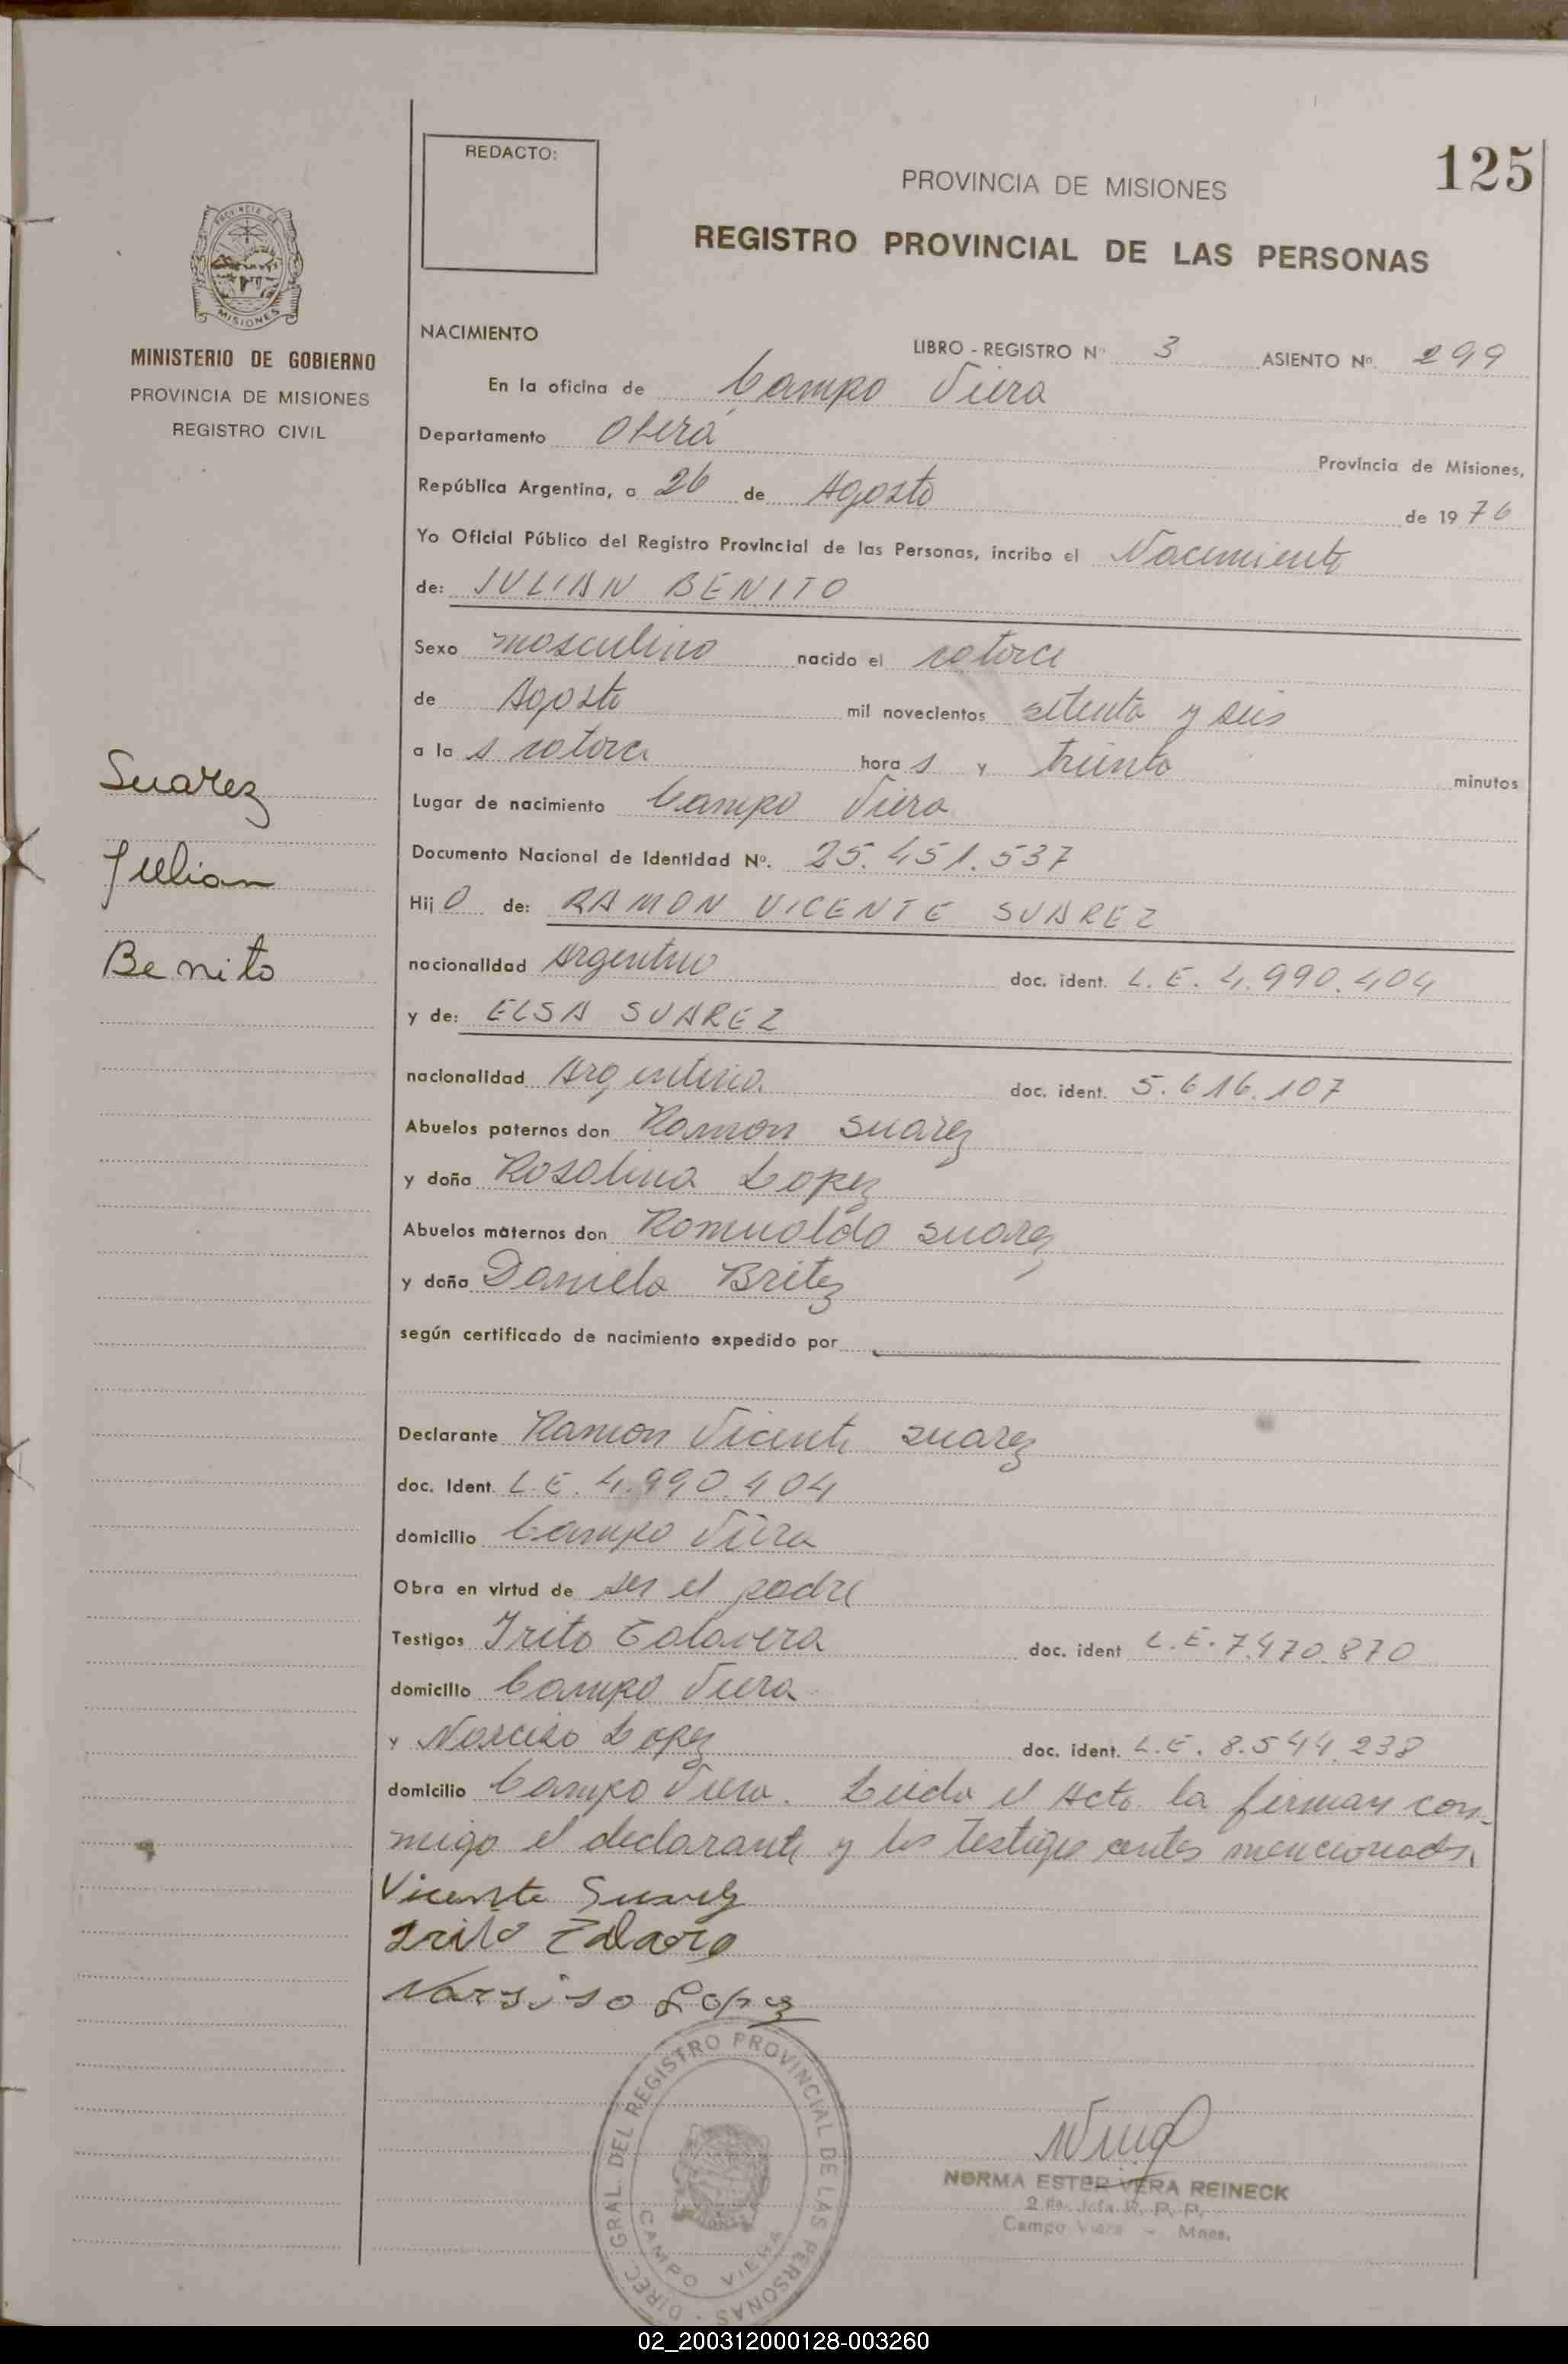 REDACTO:
125
PROVINCIA DE MISIONES
REGISTRO PROVINCIAL DE LAS PERSONAS
PROVINCIA DE
MISIONES
MINISTERIO DE GOBIERNO
PROVINCIA DE MISIONES
REGISTRO CIVIL
NACIMIENTO
LIBRO - REGISTRO Nº 3 ASIENTO Nº. 299
En la oficina de Campo Viera
Departamento Oberá Provincia de Misiones,
República Argentina, a 26 de Agosto de 1976
Yo Oficial Público del Registro Provincial de las Personas, incribo el Nacimiento
de: JULIAN BENITO
Sexo masculino nacido el catorce
de Agosto mil novecientos setenta y seis
a la s catorce hora s y treinta minutos
Lugar de nacimiento Campo Viera
Documento Nacional de Identidad Nº. 25.451.537
Hij O de: RAMON VICENTE SUAREZ
nacionalidad Argentino doc. ident. L.E. 4.990.404
y de: ELSA SUAREZ
nacionalidad Argentina. doc. ident. 5.616.107
Abuelos paternos don Ramon Suarez
y doña Rosalina Lopez
Abuelos maternos don Romualdo Suarez
y doña Daniela Britez
según certificado de nacimiento expedido por
Declarante Ramon Vicente Suarez
doc. Ident. L.E. 4.990.404
domicilio Campo Viera
Obra en virtud de ser el padre
Testigos Irito Talavera doc. ident L.E. 7.470.870
domicilio Campo Viera
y Narciso Lopez doc. ident. L.E. 8.544.238
domicilio Campo Viera. Leida el Acta la firman con-
migo el declarante y los testigos antes mencionados.
Vicente Suarez
Irito
Narsiso Lopez
Suarez
Julian
Benito
DIREC. GRAL. DEL REGISTRO PROVINCIAL DE LAS PERSONAS
CAMPO VIERA
NORMA ESTER VERA REINECK
2 da. Jefa R. P. P.
Campo Viera - Mnes.
02_200312000128-003260